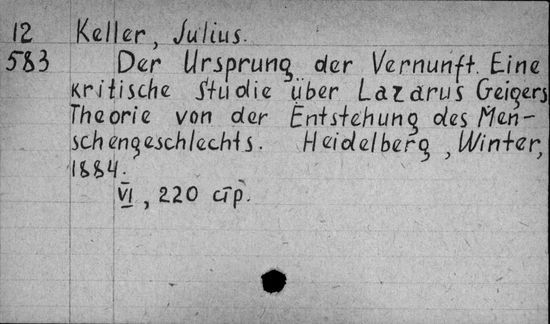 12 Keller, Julius.
583 Der Ursprung der Vernunft. Eine
kritische Studie über Lazarus Geigers
Theorie von der Entstehung des Men-
schengeschlechts. Heidelberg, Winter,
1884.
VI, 220 стр.